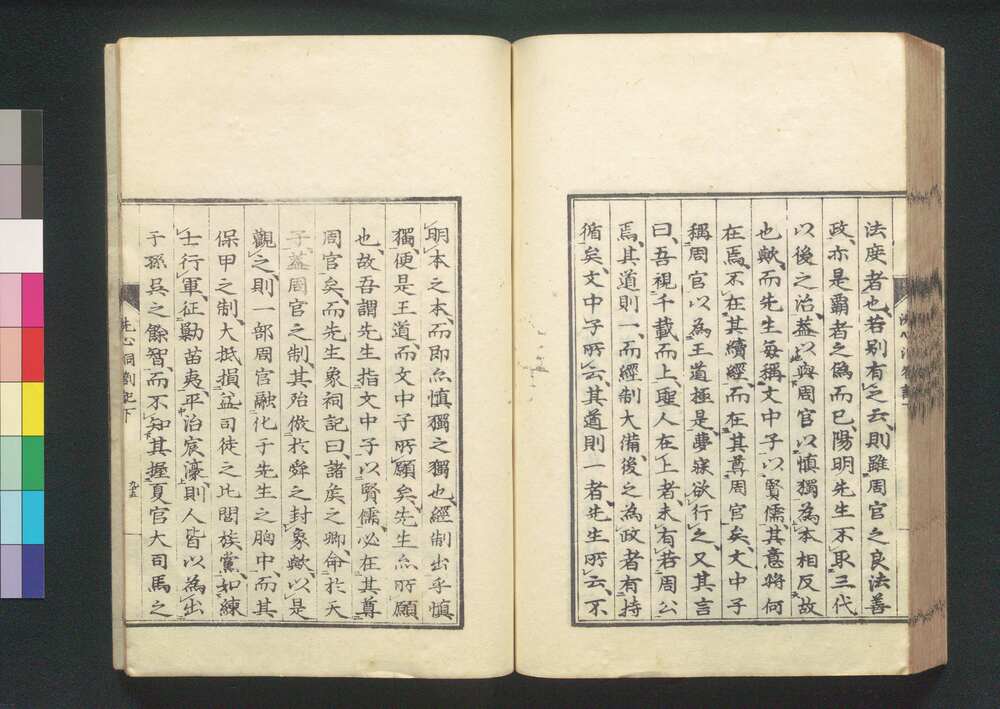 法度者也、若别有之云、則雖周官之良法善
政、亦是霸者之僞而已、陽明先生不取三代
以後之治、蓋以與周官以慎獨為本相反故
也歟、而先生每稱文中子以賢儒、其意將何
在焉、不在其續經而在其尊周官矣、文中子
稱周官以為王道極是、夢寐欲行之、又其言
曰、吾視千載而上、聖人在上者、未有若周公
焉、其道則一、而經制大備、後之為政者有持
循矣、文中子所云、其道則一者、先生所云、不
明本之本、而即亦慎獨之獨也、經制出乎慎
獨、便是王道、而文中子所願矣、先生亦所願
也、故吾謂先生指文中子以賢儒、必在其尊
周官矣、而先生象祠記曰、諸矦之卿、命於天
子、蓋周官之制、其殆倣於舜之封象歟、以是
觀之、則一部周官融化于先生之胸中、而其
保甲之制、大抵損益司徒之比閭族黨、如練
士行軍、征勦苗夷、平治宸濠、則人皆以為出
于孫吳之餘智、而不知其握夏官大司馬之
洗心洞劄記下
九五